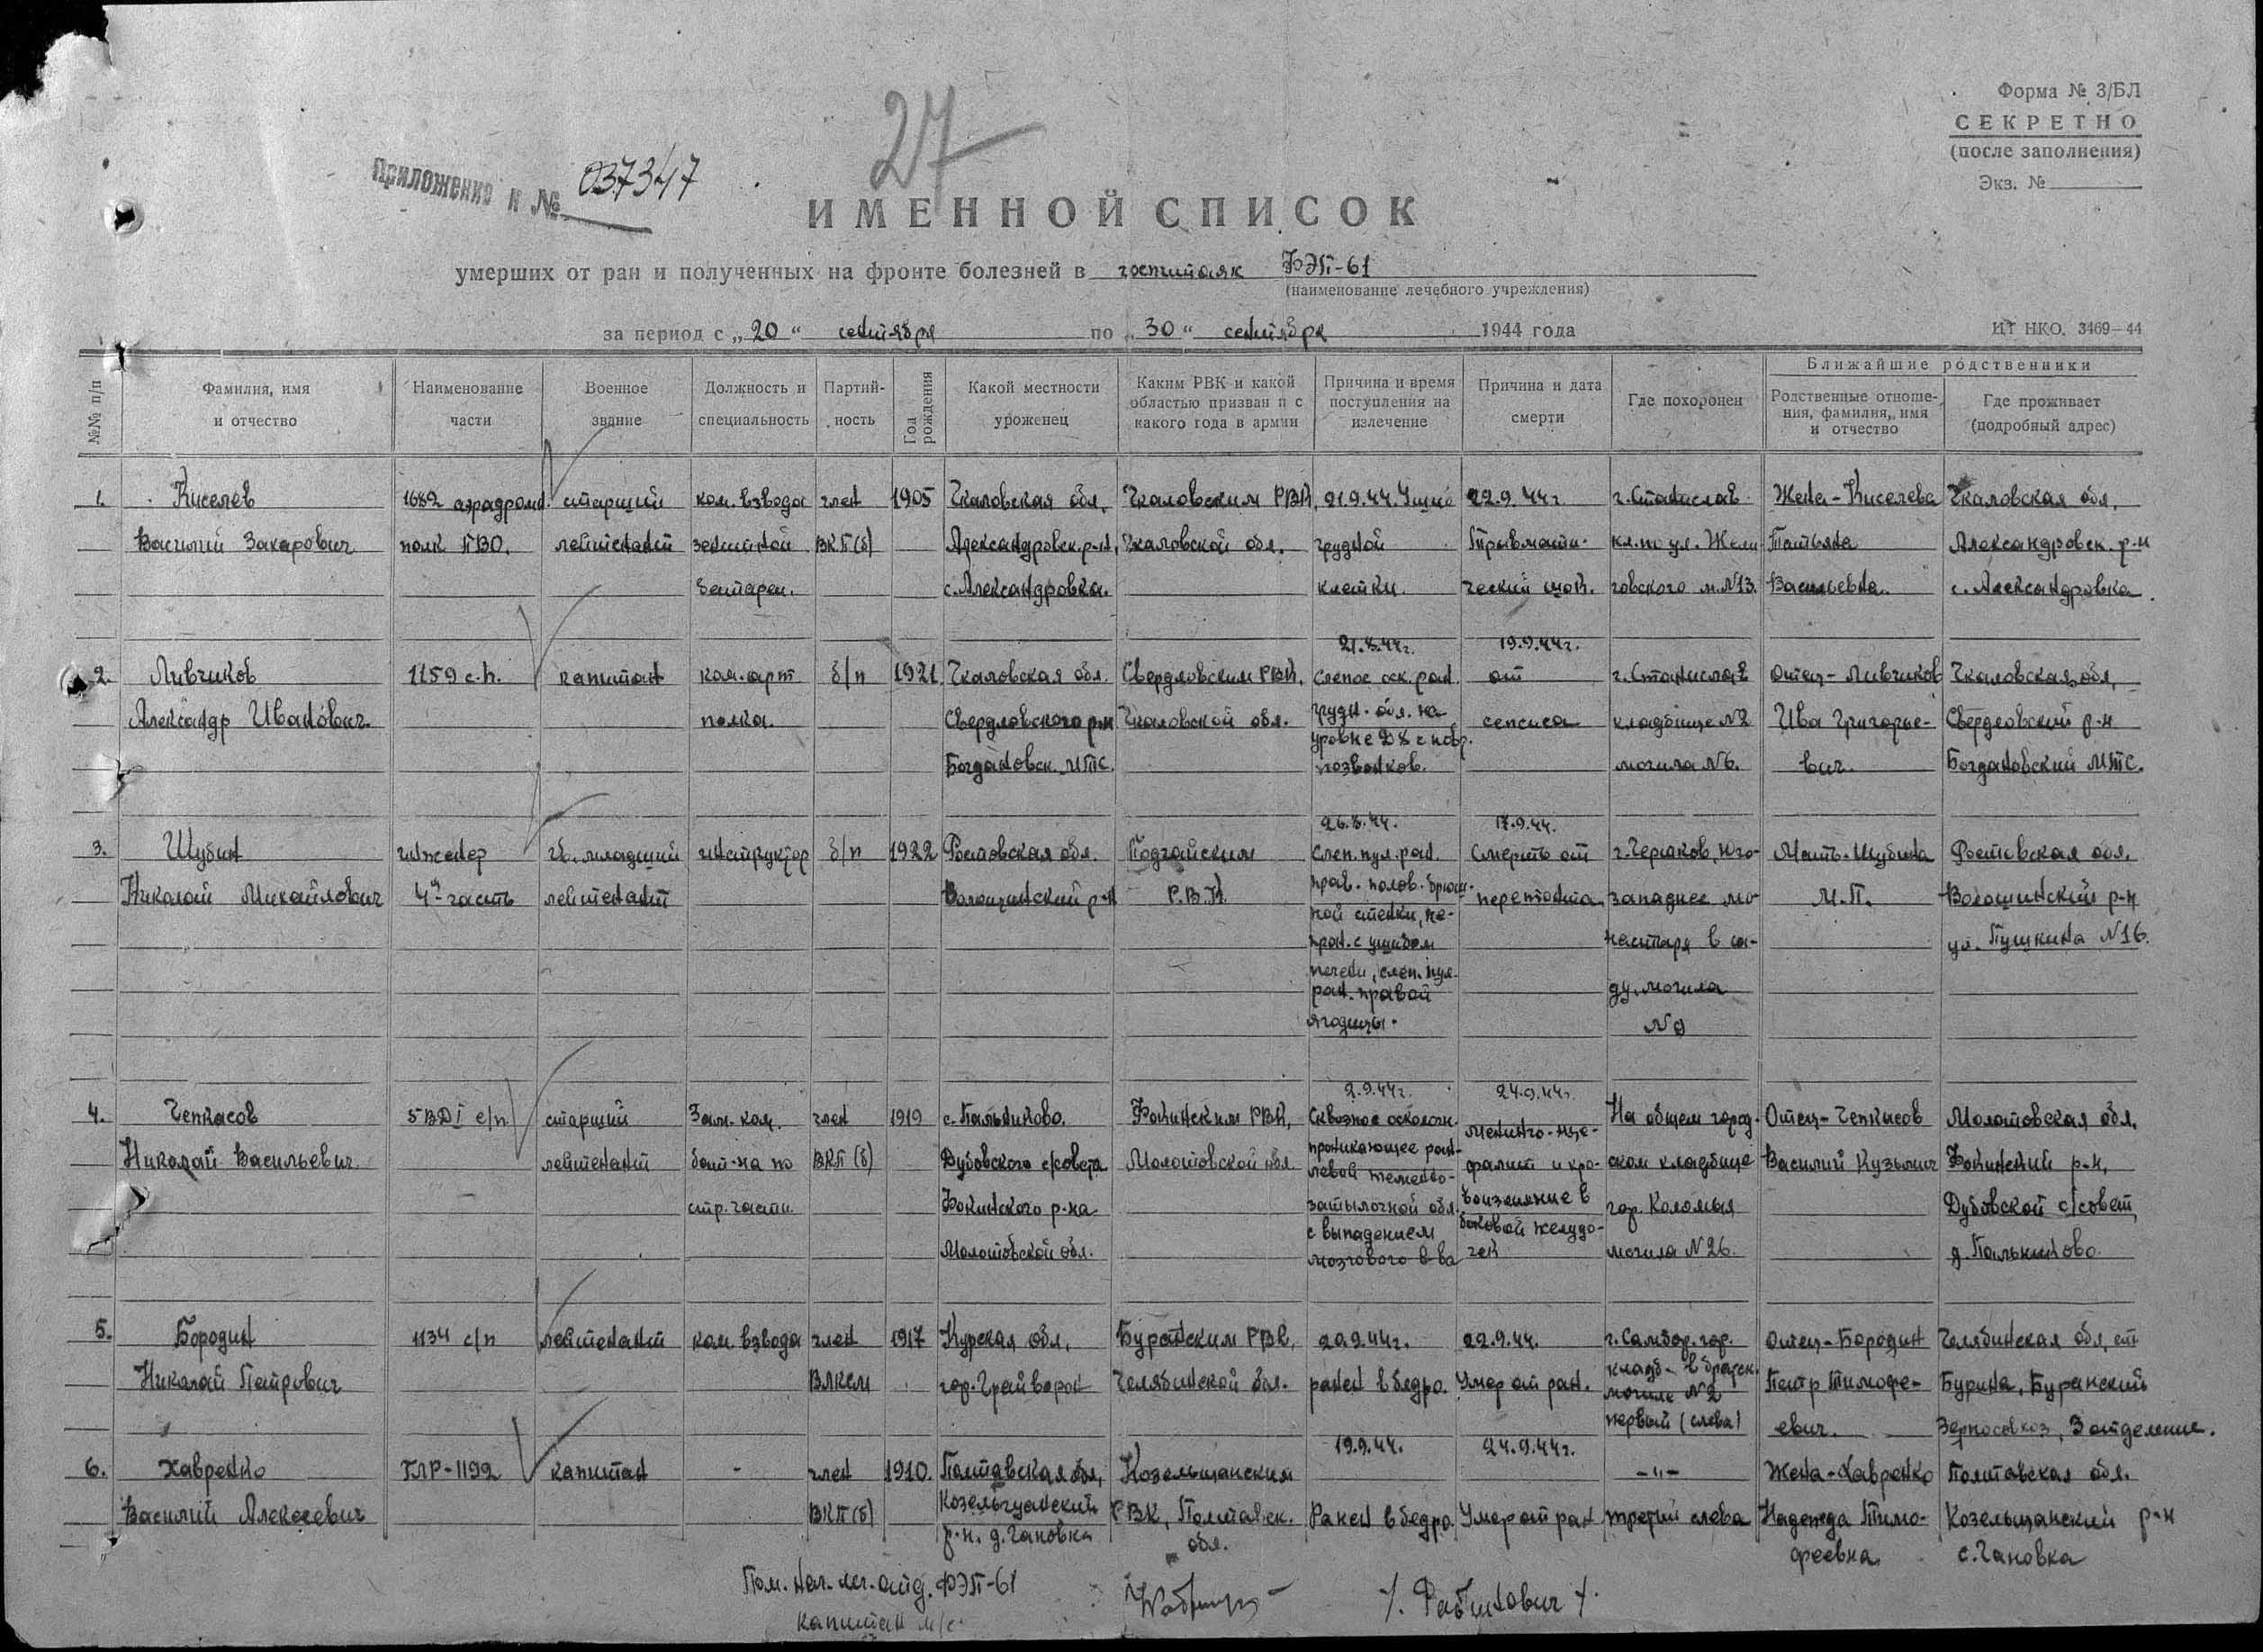 Форма № 3/БЛ
СЕКРЕТНО
(после заполнения)
Экз. №
Приложение к № 037347
27
ИМЕННОЙ СПИСОК
умерших от ран и полученных на фронте болезней в госпиталях ФЭП-61
(наименование лечебного учреждения)
за период с „20“ сентября по „30“ сентября 1944 года
ЦТ НКО. 3469—44
№№ п/п
Фамилия, имя и отчество
Наименование части
Военное звание
Должность и специальность
Партий-ность
Год рождения
Какой местности уроженец
Каким РВК и какой областью призван и с какого года в армии
Причина и время поступления на излечение
Причина и дата смерти
Где похоронен
Ближайшие родственники
Родственные отноше-ния, фамилия, имя и отчество
Где проживает (подробный адрес)
1. Киселев 1682 аэродромн. старший ком. взвода член 1905 Чкаловская обл, Чкаловским РВК, 21.9.44. Ушиб 22.9.44г г.Станислав Жена-Киселева Чкаловская обл,
Василий Захарович полк ПВО. лейтенант зенитной ВКП(б) Александровск.р-н, Чкаловской обл. грудной Травмати- кл.по ул. Жели- Татьяна Александровск. р-н
батареи. с.Александровка. клетки. ческий шок. говского м.№13. Васильевна. с. Александровка.
21.8.44г. 19.9.44г.
2. Ливчиков 1159 с.п. капитан ком.арт б/п 1921. Чкаловская обл. Свердловским РВК, Слепое оск. ран. от г.Станислав Отец-Ливчиков Чкаловская обл,
Александр Иванович полка. Свердловского р-н Чкаловской обл. грудн. обл. на сепсиса кладбище №2 Ива Григорье- Свердловский р-н
уровне Д8 с повр.
Богдановск. МТС. позвонков. могила №6. вич. Богдановский МТС.
26.8.44. 17.9.44.
3. Шубин инженер гв. младший инструктор б/п 1922 Ростовская обл. Подгайским Слеп.пул.ран. Смерть от г.Чертков, Юго- Мать-Шубина Ростовская обл.
Николай Михайлович 4я часть лейтенант Волошинский р-н Р.В.К. прав. полов. брюш- перетонита западнее мо- М.П. Волошинский р-н
ной стенки, не-
пран. с ушибом настаря в са- ул. Пушкина №16.
печени, слеп. пул.
ран. правой ду, могила
ягодицы. №9
2.9.44г. 24.9.44г.
4. Чепкасов 5 ВДI с/п старший Зам. ком. член 1919 с.Пальниково. Фокинским РВК, Сквозное осколочн. менинго-нце- На общем город- Отец-Чепкасов Молотовская обл,
Николай Васильевич лейтенант бат-на по ВКП(б) Дубовского с/совета Молотовской обл. проникающее ран- фалит и кро- ском кладбище Василий Кузьмич Фокинский р-н,
левой теменно-
стр. части. Фокинского р-на затылочной обл. воизлияние в гор. Коломыя Дубовской с/совет,
с выпадением боковой желудо-
Молотовской обл. мозгового в-ва чек могила №26. д.Пальниково.
5. Бородин 1134 с/п лейтенант ком взвода член 1917 Курская обл, Буранским РВК, 20.9.44г. 22.9.44. г.Самбор.гор. Отец-Бородин Челябинская обл, ст
Николай Петрович ВЛКСМ гор.Грайворон Челябинской обл. ранен в бедро. Умер от ран. кладб- в братск. могиле №2 Петр Тимофе- Бурина, Буранский
первый (слева) евич. Зерносовхоз, 3 отделение.
19.9.44. 24.9.44г.
6. Хавренко ГЛР-1192 капитан - член 1910. Полтавская обл, Козельщанским -"- Жена-Хавренко Полтавская обл.
Василий Алексеевич ВКП(б) Козельщанский РВК, Полтавск. Ранен в бедро. Умер от ран третий слева Надежда Тимо- Козельщанский р-н
р-н. д.Гановка обл. феевна с.Гановка
Пом. нач. леч. отд. ФЭП-61
капитан м/с
/. Рабинович /.